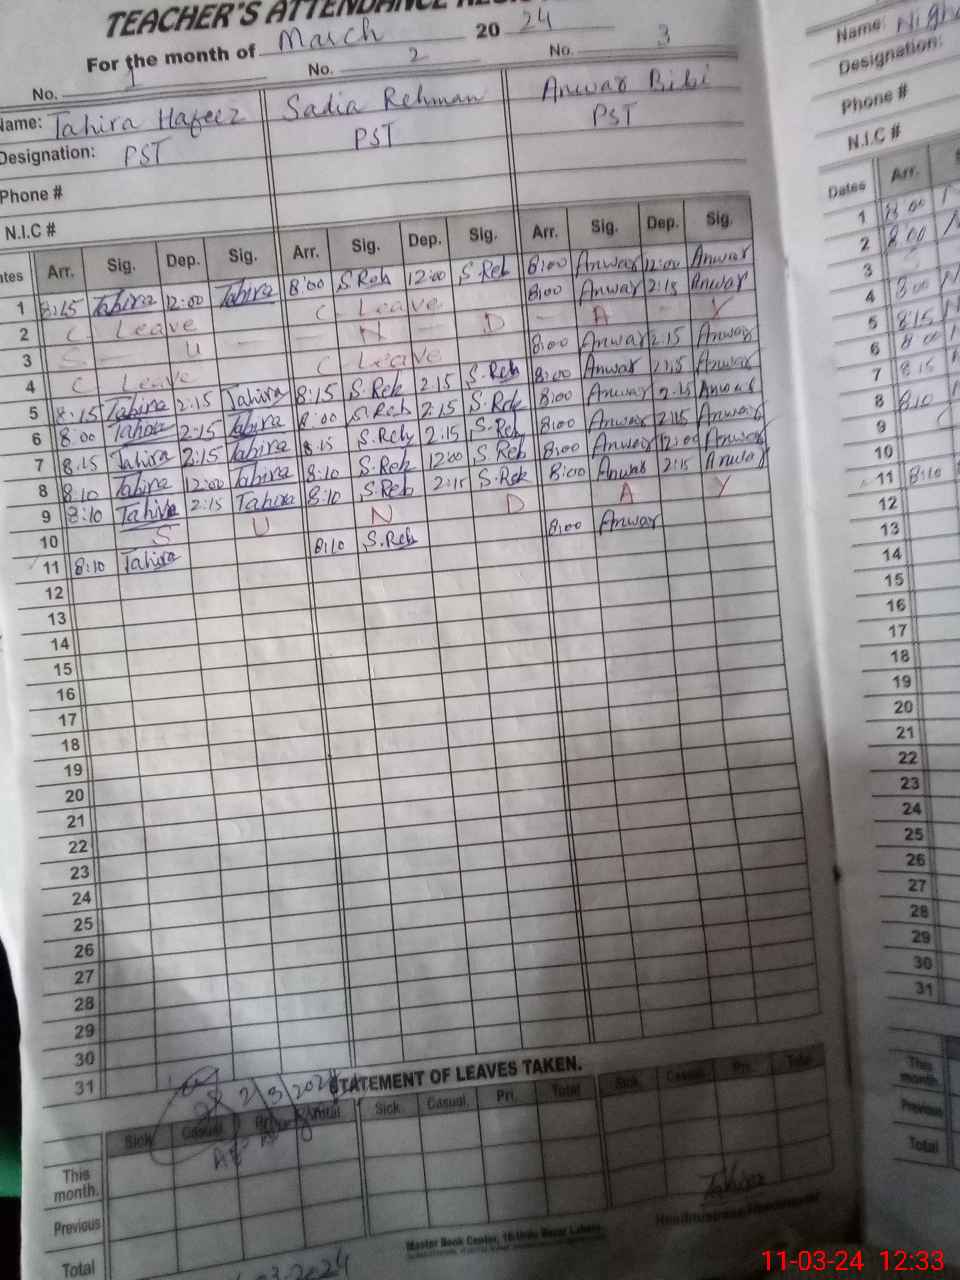 TEACHER'S ATTENDANCE
For the month of March 20 24
No. 1 No. 2 No. 3
Name: Tahira Hafeez Sadia Rehman Anwar Bibi
Designation: PST PST PST
Phone #
N.I.C #
Arr. Sig. Dep. Sig. Arr. Sig. Dep. Sig. Arr. Sig. Dep. Sig.
1 8:15 Tahira 12:00 Tahira 8:00 S.Reh 12:00 S.Reh 8:00 Anwar 12:00 Anwar
2 C Leave C Leave 8:00 Anwar 2:15 Anwar
3 S U N D A Y
4 C Leave C Leave 8:00 Anwar 2:15 Anwar
5 8:15 Tahira 2:15 Tahira 8:15 S.Reh 2:15 S.Reh 8:00 Anwar 2:15 Anwar
6 8:00 Tahira 2:15 Tahira 8:00 S.Reh 2:15 S.Reh 8:00 Anwar 2:15 Anwar
7 8:15 Tahira 2:15 Tahira 8:15 S.Reh 2:15 S.Reh 8:00 Anwar 2:15 Anwar
8 8:10 Tahira 12:00 Tahira 8:10 S.Reh 12:00 S.Reh 8:00 Anwar 12:00 Anwar
9 8:10 Tahira 2:15 Tahira 8:10 S.Reh 2:15 S.Reh 8:00 Anwar 2:15 Anwar
10 S U N D A Y
11 8:10 Tahira 8:10 S.Reh 8:00 Anwar
12
13
14
15
16
17
18
19
20
21
22
23
24
25
26
27
28
29
30
31
STATEMENT OF LEAVES TAKEN.
Sick Casual Sick. Casual. Pri. Total Sick. Casual. Pri. Total
This month.
Previous
Total
Master Book Center, 16-Urdu Bazar Lahore
Name:
Designation:
Phone #
N.I.C #
Dates Arr.
1 8:00
2 8:00
3
4 8:00
5 8:15
6 8:00
7 8:15
8 8:10
9
10
11 8:10
12
13
14
15
16
17
18
19
20
21
22
23
24
25
26
27
28
29
30
31
This month.
Previous
Total
11-03-24 12:33